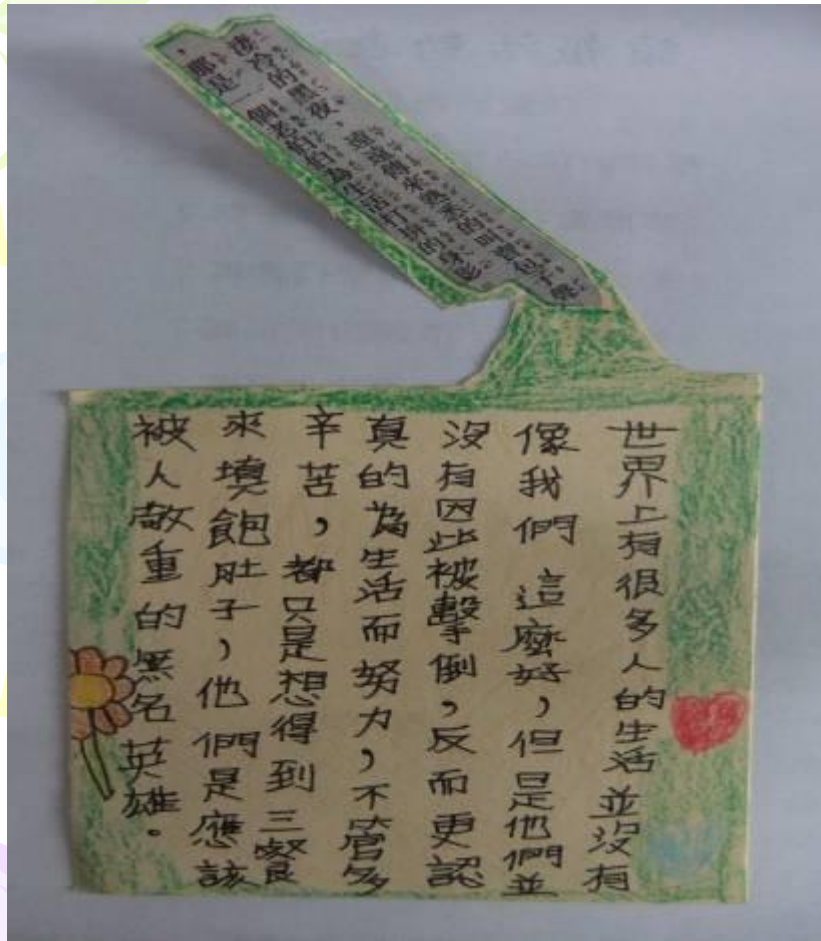 淒冷的黑夜，遠遠傳來熟悉的叫賣聲
，那是一個老伯伯為生活打拼的身影
世界上有很多人的生活並沒有
像我們這麼好，但是他們並
沒有因此被擊倒，反而更認
真的為生活而努力，不管多
辛苦，都只是想得到三餐
來填飽肚子，他們是應該
被人敬重的無名英雄。